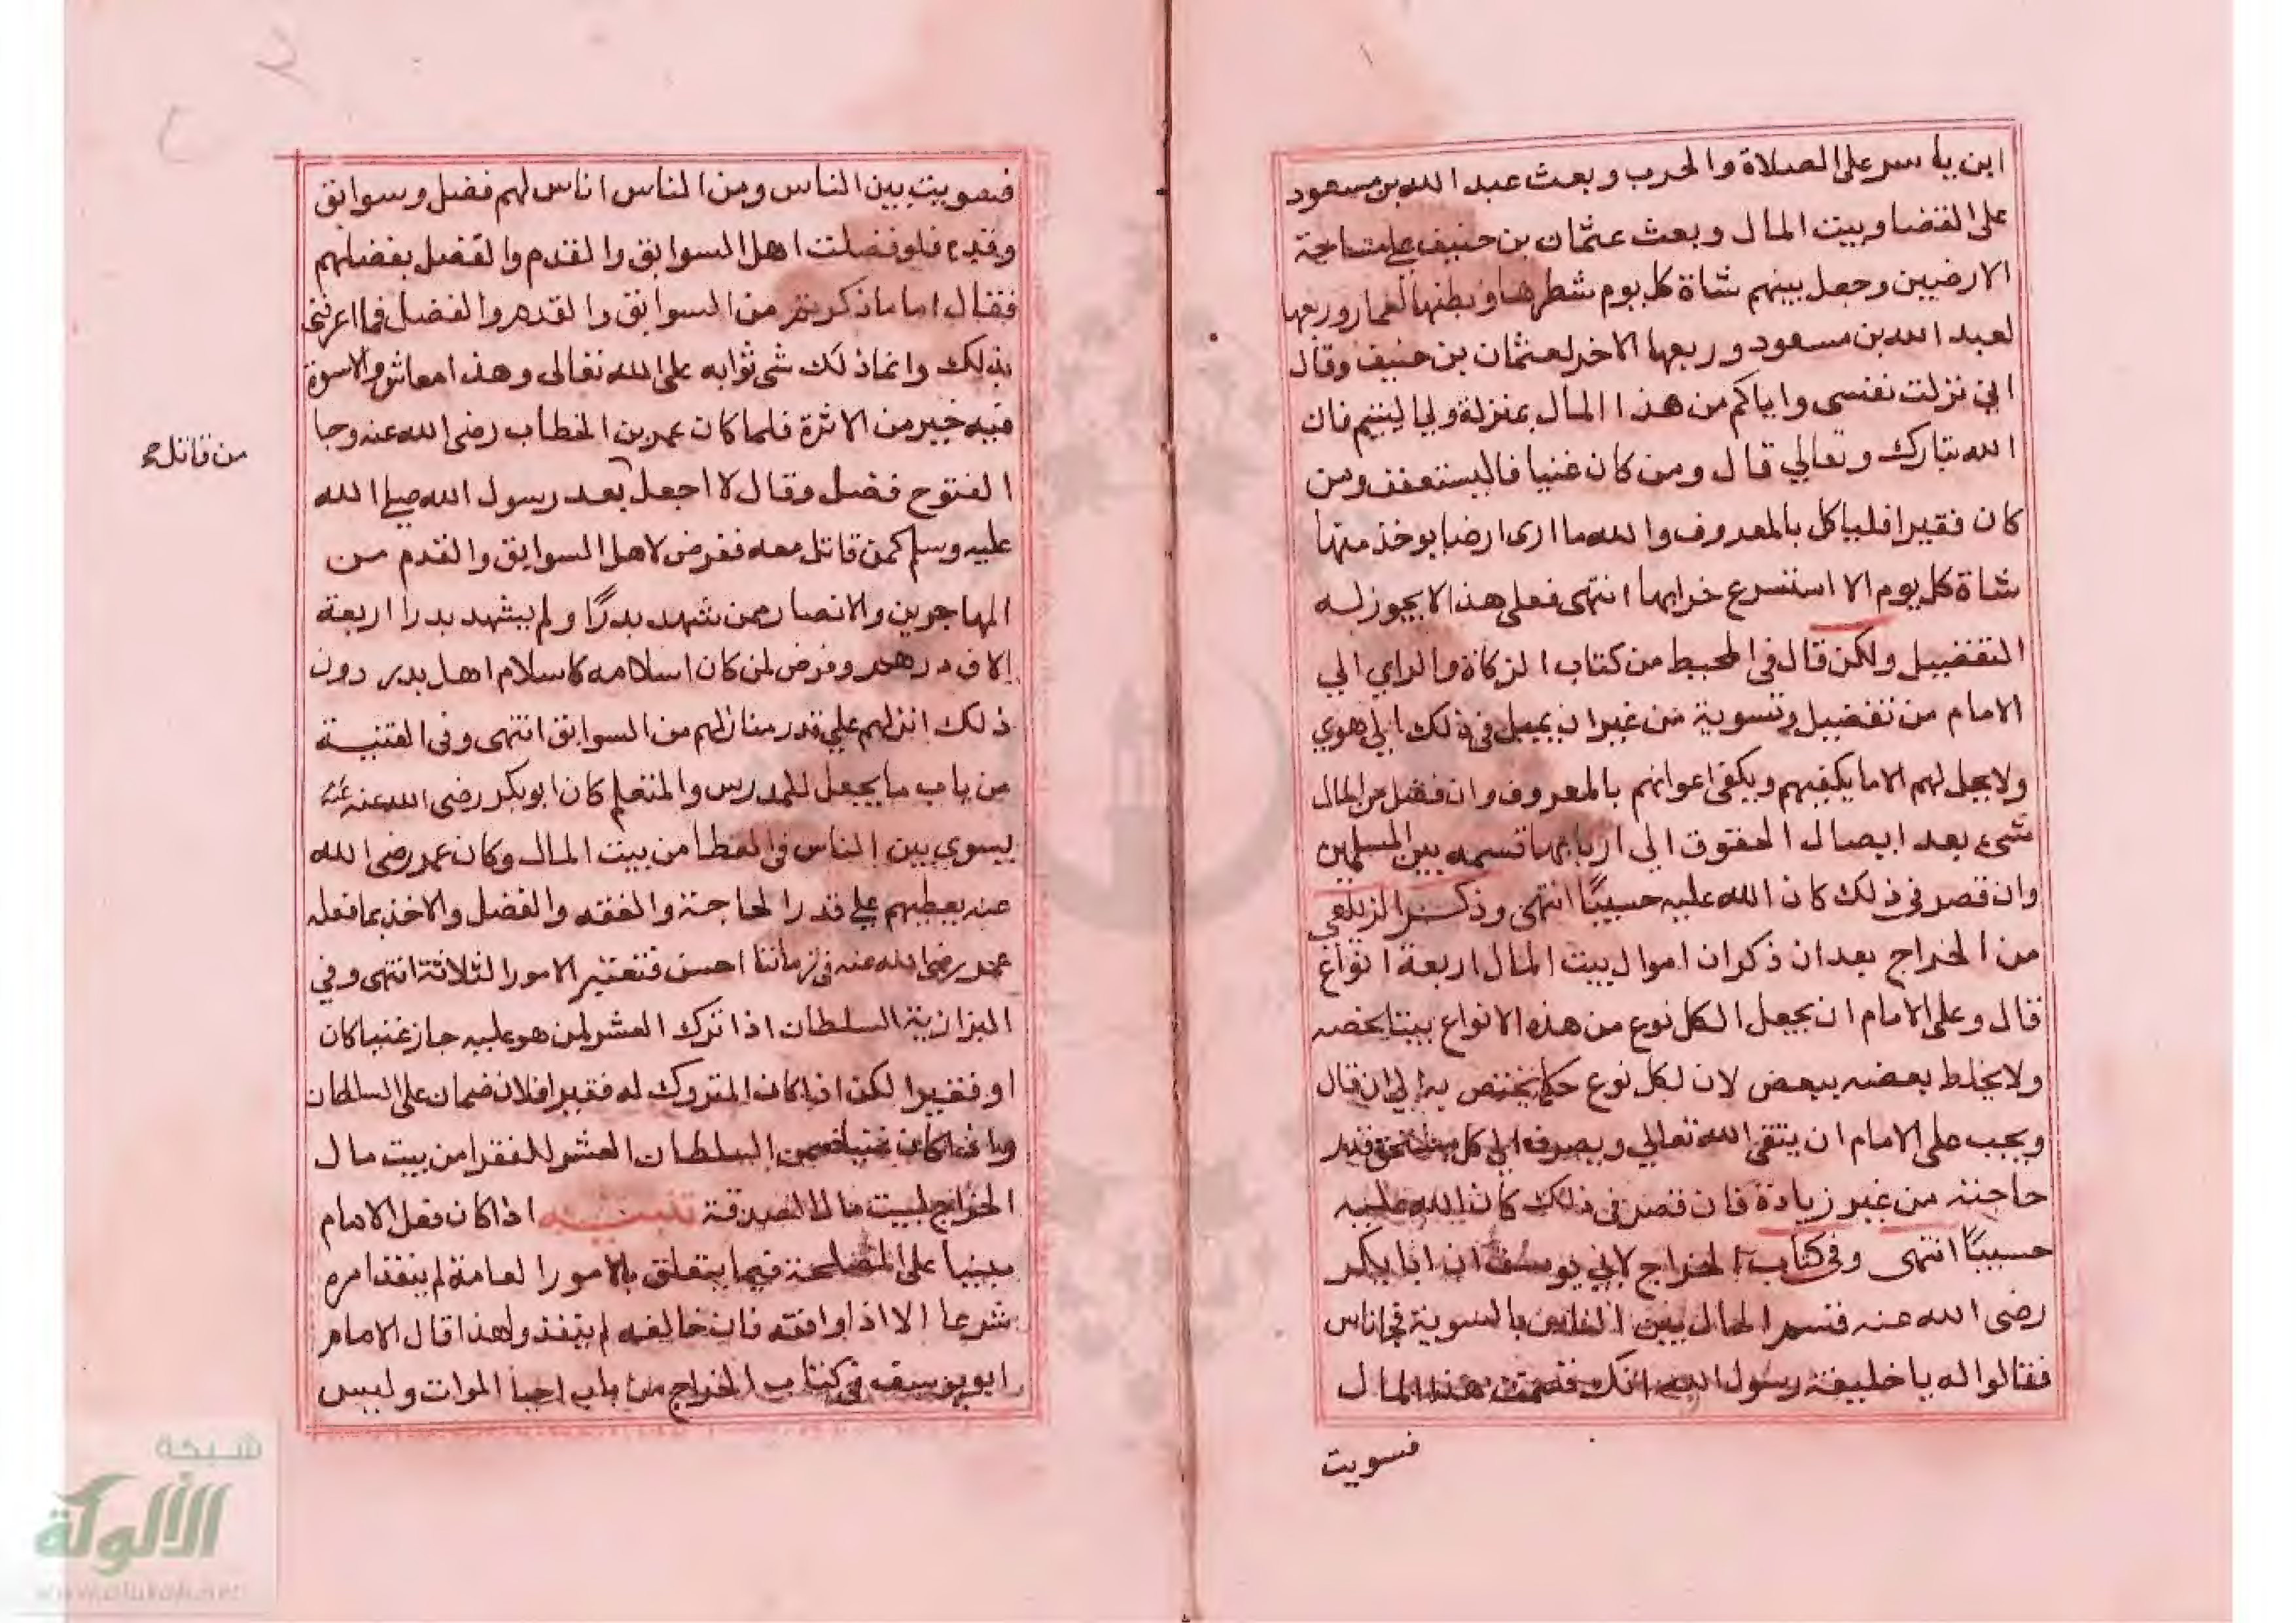 ابن ياسر على الصلاة والحرب وبعث عبد الله بن مسعود
على القضا وبيت المال وبعث عثمان بن حنيف على مساحة
الارضيين وجعل بينهم شاة كل يوم شطرها وبطنها لعمار وربعها
لعبد الله بن مسعود وربعها الاخر لعثمان بن حنيف وقال
اني نزلت نفسي واياكم من هذا المال بمنزلة ولي اليتيم فان
الله تبارك وتعالي قال ومن كان غنيا فاليستعفف ومن
كان فقيرا فليا كل بالمعروف والله ما ارى ارضا يوخذ منها
شاة كل يوم الا استسرع خرابها انتهى فعلى هذا لا يجوز له
التفضيل ولكن قال في المحيط من كتاب الزكاة والراي الي
الامام من تفضيل وتسوية من غير ان يميل في ذلك الي هوي
ولا يحل لهم الا ما يكفيهم ويكفي اعوانهم بالمعروف وان فضل من المال
شيء بعد ايصال الحقوق الى اربابها قسمه بين المسلمين
وان قصر في ذلك كان الله عليه حسيبًا انتهى وذكر الزيلعي
من الخراج بعد ان ذكر ان اموال بيت المال اربعة انواع
قال وعلى الامام ان يجعل لكل نوع من هذه الانواع بيتا يخصه
ولا يخلط بعضه ببعض لان لكل نوع حكما يختص به الي ان قال
ويجب على الامام ان يتقي الله تعالي ويصرف الي كل مستحق قدر
حاجته من غير زيادة فان قصر في ذلك كان الله عليه
حسيبًا انتهى وفي كتاب الخراج لابي يوسف ان ابا بكر
رضى الله عنه قسم المال بين الناس بالسوية فجا ناس
فقالوا له يا خليفة رسول الله انك قسمت هذا المال
فسويت
فسويت بين الناس ومن الناس اناس لهم فضل وسوابق
وقدم فلو فضلت اهل السوابق والقدم والفضل بفضلهم
فقال اما ما ذكرتم من السوابق والقدم والفضل فما اعرفني
بذلك وانما ذلك شي ثوابه على الله تعالى وهذا معاش والاسوة
فيه خير من الاثرة فلما كان عمر بن الخطاب رضى الله عنه وجا
الفتوح فضل وقال لا اجعل بعد رسول الله صلى الله
من قاتل
عليه وسلم كمن قاتل معه ففرض لاهل السوابق والقدم من
المهاجرين والانصار ممن شهد بدرًا ولم يشهد بدرا اربعة
الاف درهم وفرض لمن كان اسلامه كاسلام اهل بدر دون
ذلك انزلهم علي قدر منازلهم من السوابق انتهى وفي القنية
من باب ما يجعل للمدرس والمتعلم كان ابو بكر رضى الله عنه
يسوي بين الناس في العطا من بيت المال وكان عمر رضى الله
عنه يعطيهم على قدر الحاجة والفقه والفضل والاخذ بما فعله
عمر رضى الله عنه في زماننا احسن فتعتبر الامور الثلاثة انتهى وفي
البزازية السلطان اذا ترك العشر لمن هو عليه جاز غنيا كان
او فقيرا لكن اذا كان المتروك له فقيرا فلا ضمان على السلطان
وان كان غنيا ضمن السلطان العشر للفقرا من بيت مال
الخراج لبيت مال الصدقة تنبيه اذا كان فعل الامام
مبنيا على المصلحة فيما يتعلق بالامور العامة لم ينفذ امره
شرعا الا اذا وافقه فان خالفه لم ينفذ ولهذا قال الامام
ابو يوسف في كتاب الخراج من باب احيا الموات وليس
شبكة
الألوكة
www.alukah.net